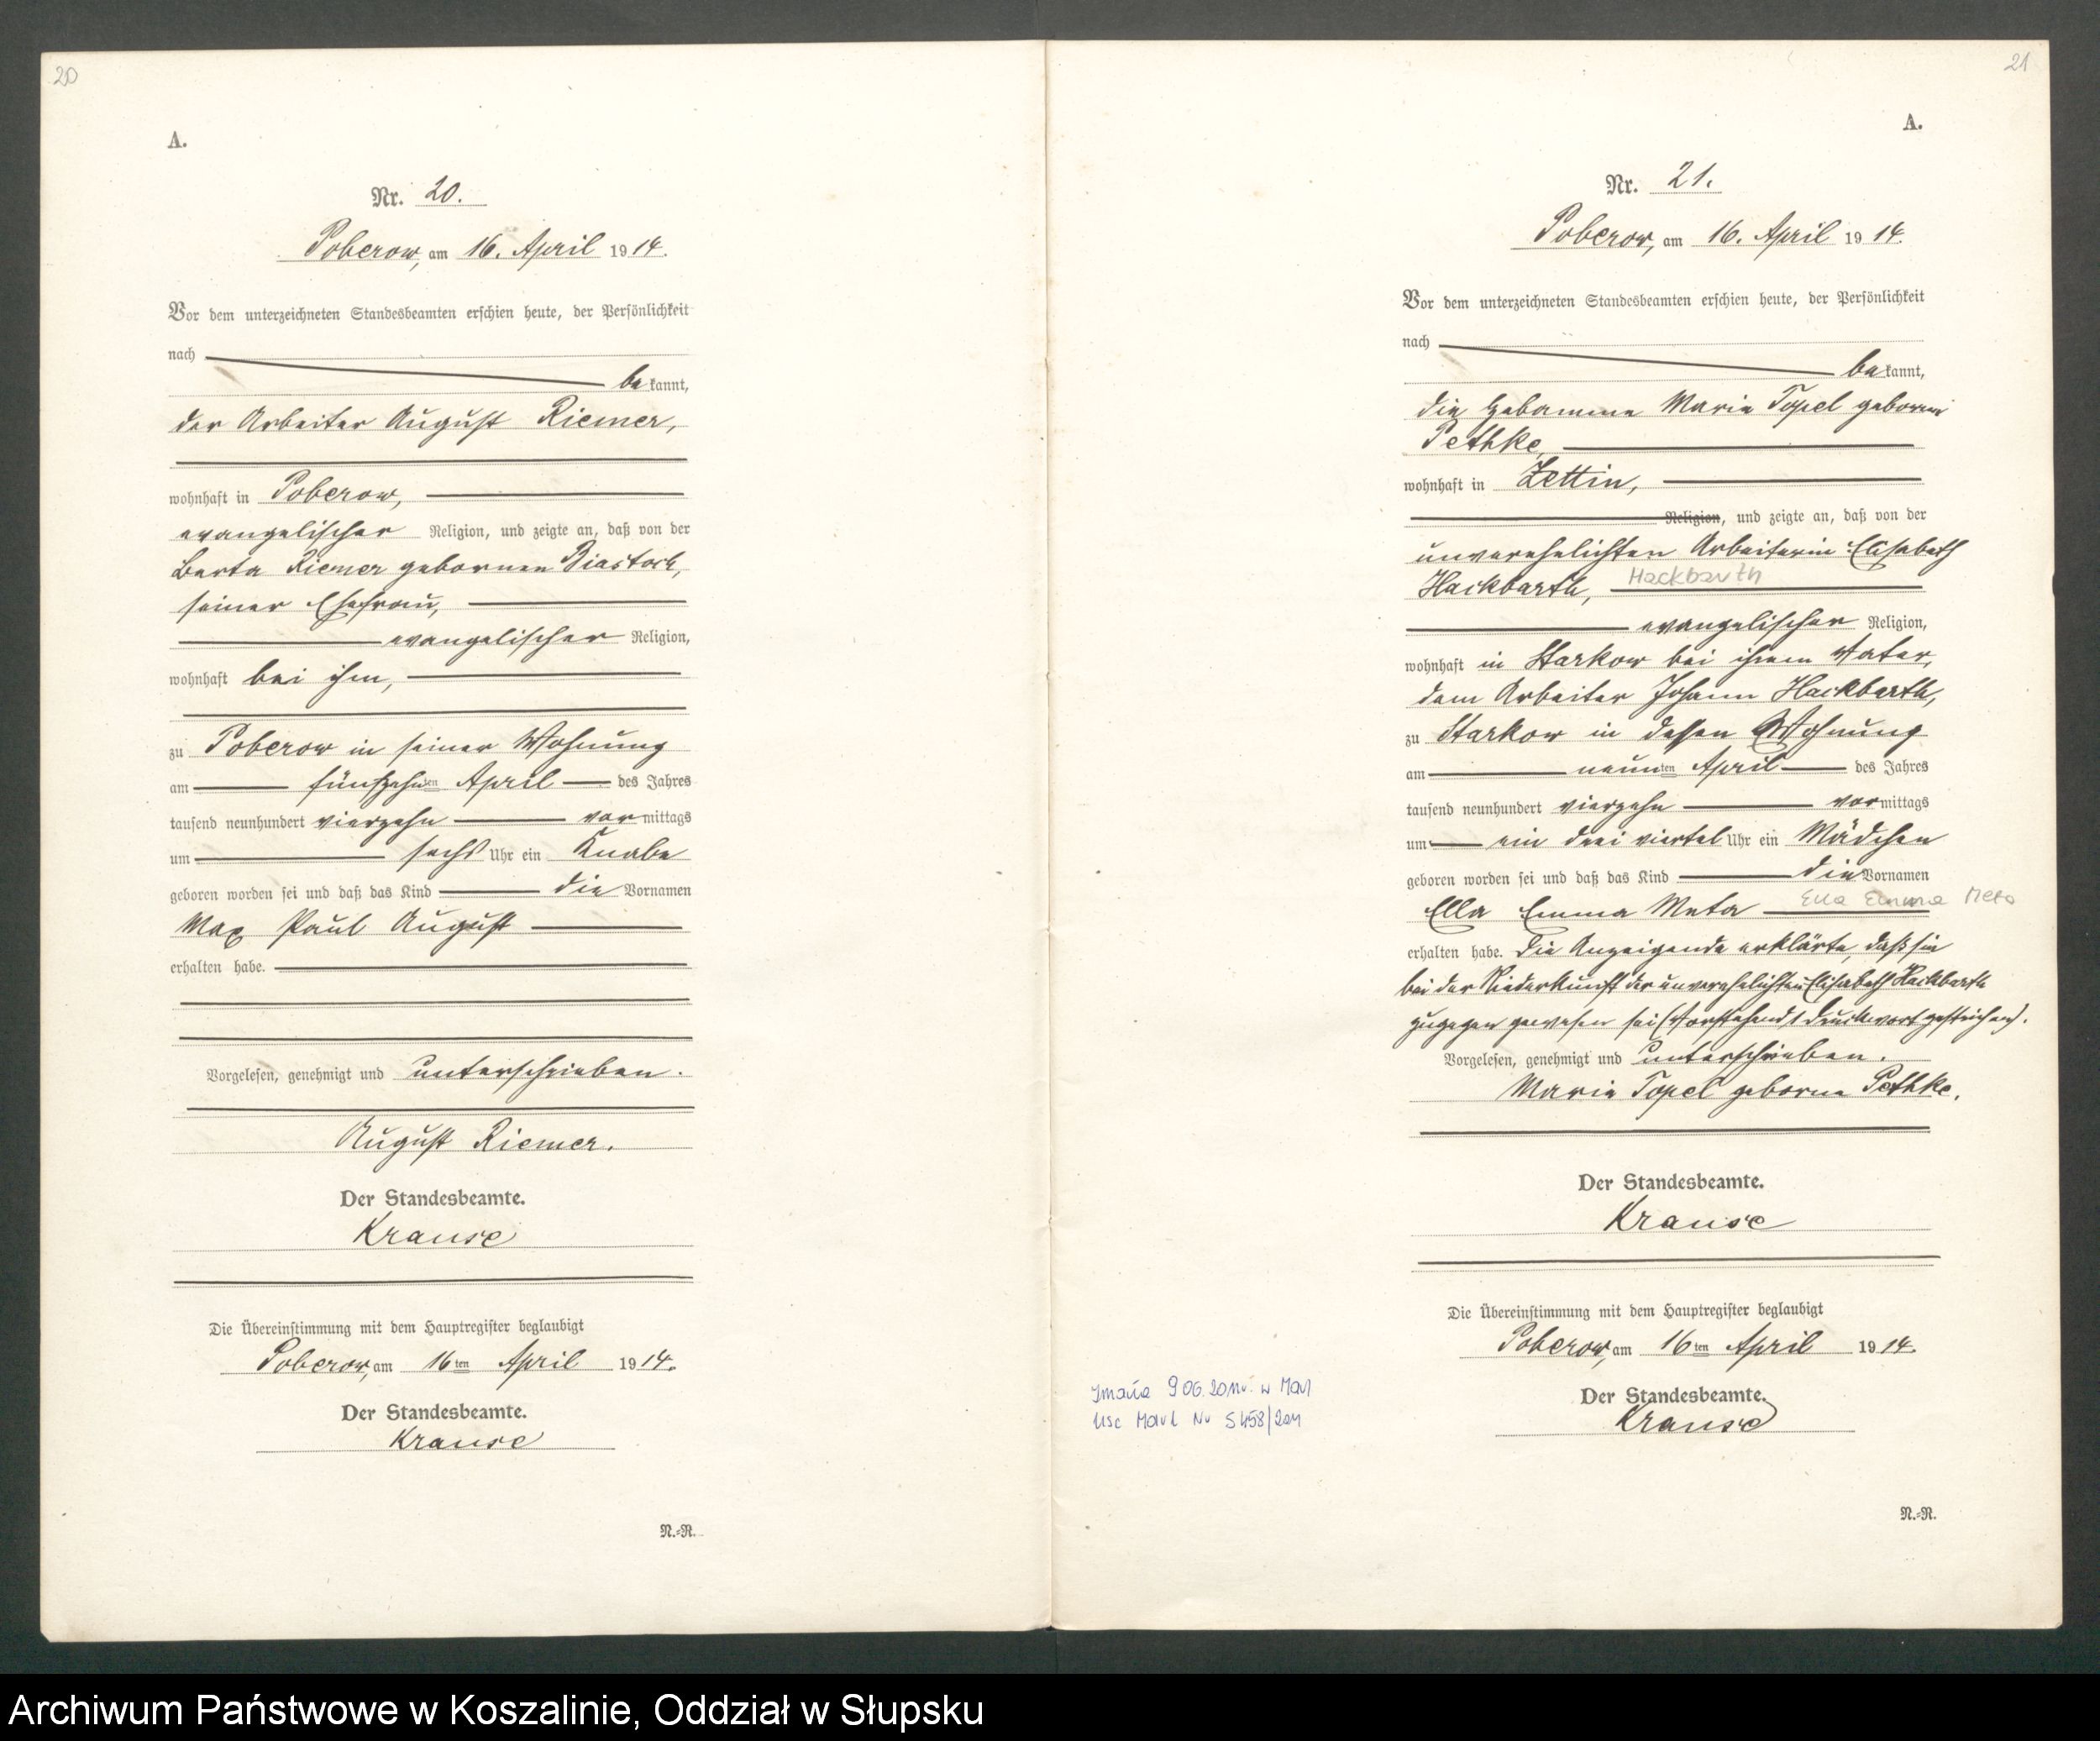 20
A.
Nr. 20.
Poberow, am 16. April 1914.
Vor dem unterzeichneten Standesbeamten erschien heute, der Persönlichkeit
nach
bekannt,
der Arbeiter August Riemer,
wohnhaft in Poberow,
evangelischer Religion, und zeigte an, daß von der
Berta Riemer gebornen Biastoch,
seiner Ehefrau,
evangelischer Religion,
wohnhaft bei ihm,
zu Poberow in seiner Wohnung
am fünfzehnten April des Jahres
tausend neunhundert vierzehn vormittags
um sechs Uhr ein Knabe
geboren worden sei und daß das Kind die Vornamen
Max Paul August
erhalten habe.
Vorgelesen, genehmigt und unterschrieben.
August Riemer.
Der Standesbeamte.
Krause
Die Übereinstimmung mit dem Hauptregister beglaubigt
Poberow, am 16ten April 1914.
Der Standesbeamte.
Krause
N.-R.
21
A.
Nr. 21.
Poberow, am 16. April 1914.
Vor dem unterzeichneten Standesbeamten erschien heute, der Persönlichkeit
nach
bekannt,
die Hebamme Marie Topel geborne
Pethke,
wohnhaft in Zettin,
Religion, und zeigte an, daß von der
unverehelichten Arbeiterin Elisabeth
Hackbarth, Hackbarth
evangelischer Religion,
wohnhaft in Starkow bei ihrem Vater,
dem Arbeiter Johann Hackbarth,
zu Starkow in dessen Wohnung
am neunten April des Jahres
tausend neunhundert vierzehn vormittags
um ein drei viertel Uhr ein Mädchen
geboren worden sei und daß das Kind die Vornamen
Ella Emma Meta Ella Emma Meta
erhalten habe. Die Anzeigende erklärte, daß sie
bei der Niederkunft der unverehelichten Elisabeth Hackbarth
zugegen gewesen sei (Vorstehend 1 Druckwort gestrichen).
Vorgelesen, genehmigt und unterschrieben.
Marie Topel geborne Pethke.
Der Standesbeamte.
Krause
Die Übereinstimmung mit dem Hauptregister beglaubigt
Poberow, am 16ten April 1914.
Der Standesbeamte.
Krause
N.-R.
Archiwum Państwowe w Koszalinie, Oddział w Słupsku